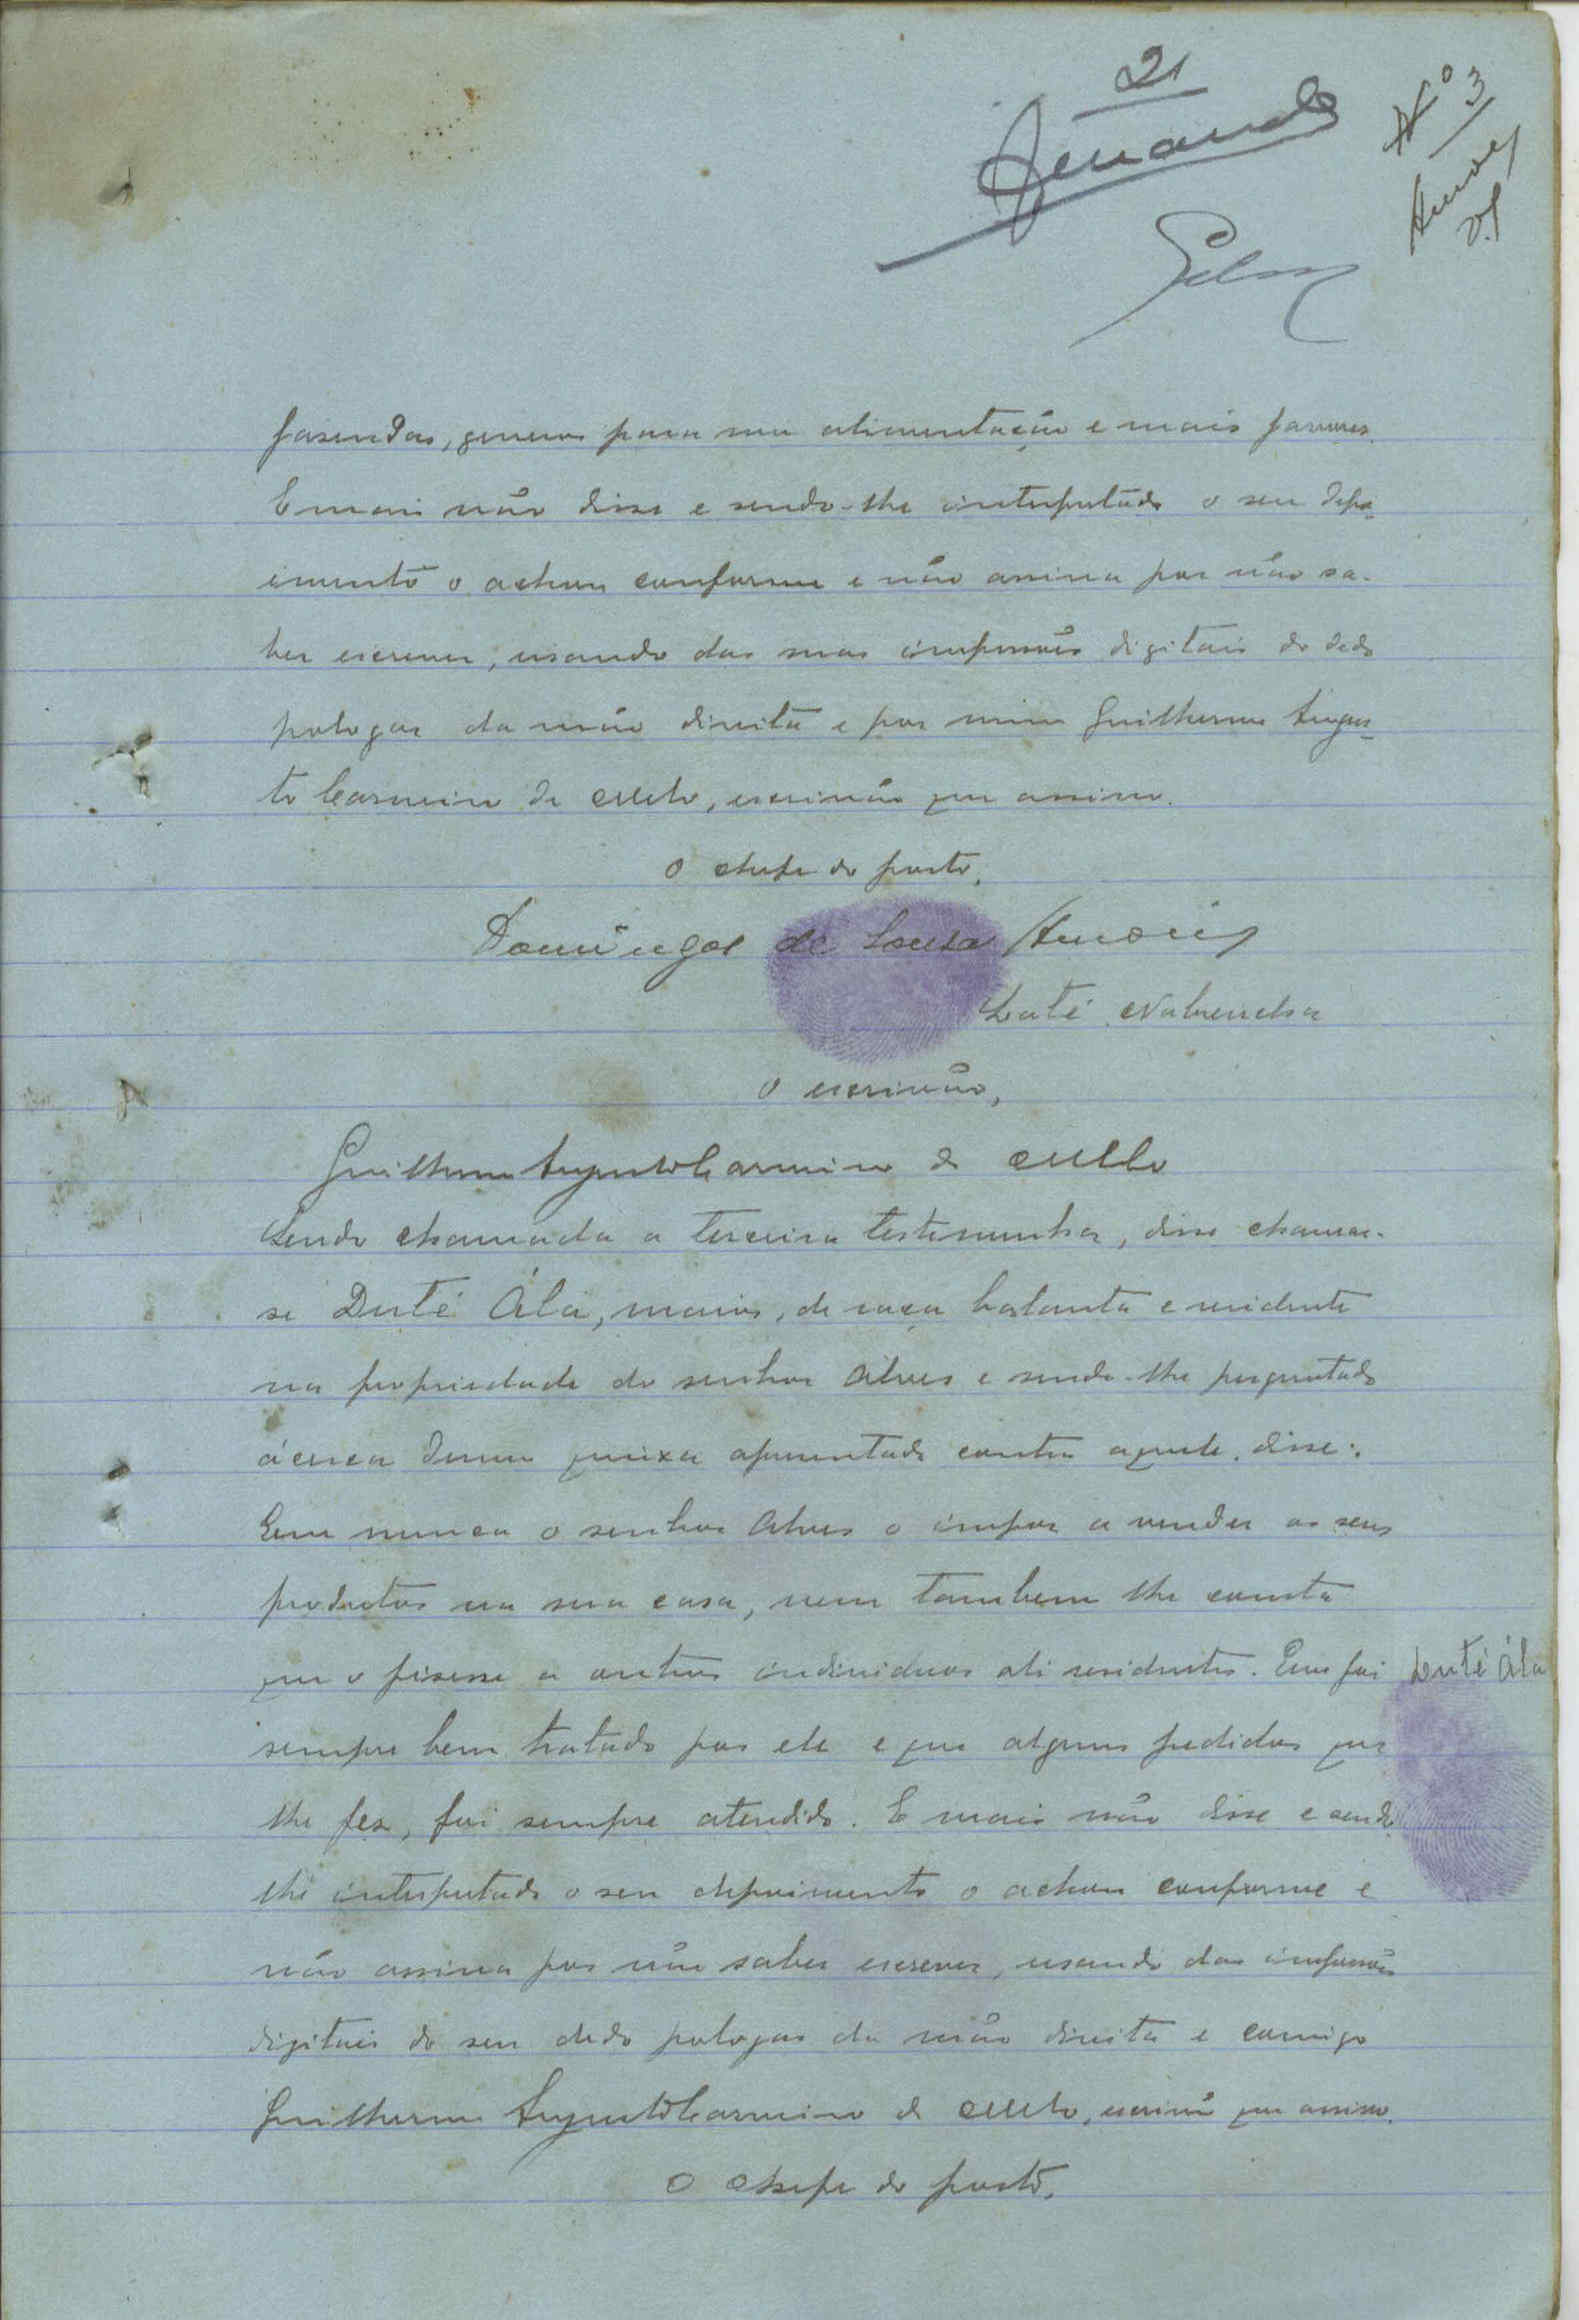 21
Nº 3
fasendas, generos para sua alimentação e mais favores.
E mais não disse e sendo-lhe interpretado o seu depo-
imento o achou conforme e não assina por não sa-
ber escrever, usando das suas impressões digitais do dedo
polegar da mão direita e por mim Guilherme Augus-
to Carneiro de Mello, escrivão que assino.
O chefe do posto,
Domingos de Sousa
O escrivão,
Guilherme Augusto Carneiro de Mello
Sendo chamada a terceira testemunha, disse chamar-
se Duté Alá, maior, de raça balanta e residente
na propriedade do senhor Alves e sendo-lhe perguntado
ácerca duma queixa apresentada contra aquele, disse:
Que nunca o senhor Alves o impoz a vender os seus
productos na sua casa, nem tambem lhe consta
que o fizesse a outros individuos ali residentes. Que foi
Duté Alá
sempre bem tratado por ele e que alguns pedidos que
lhe fez, foi sempre atendido. E mais não disse e sendo
lhe interpretado o seu depoimento o achou conforme e
não assina por não saber escrever, usando das impressões
digitais do seu dedo polegar da mão direita e comigo
Guilherme Augusto Carneiro de Mello, escrivão que assino.
O chefe do posto,